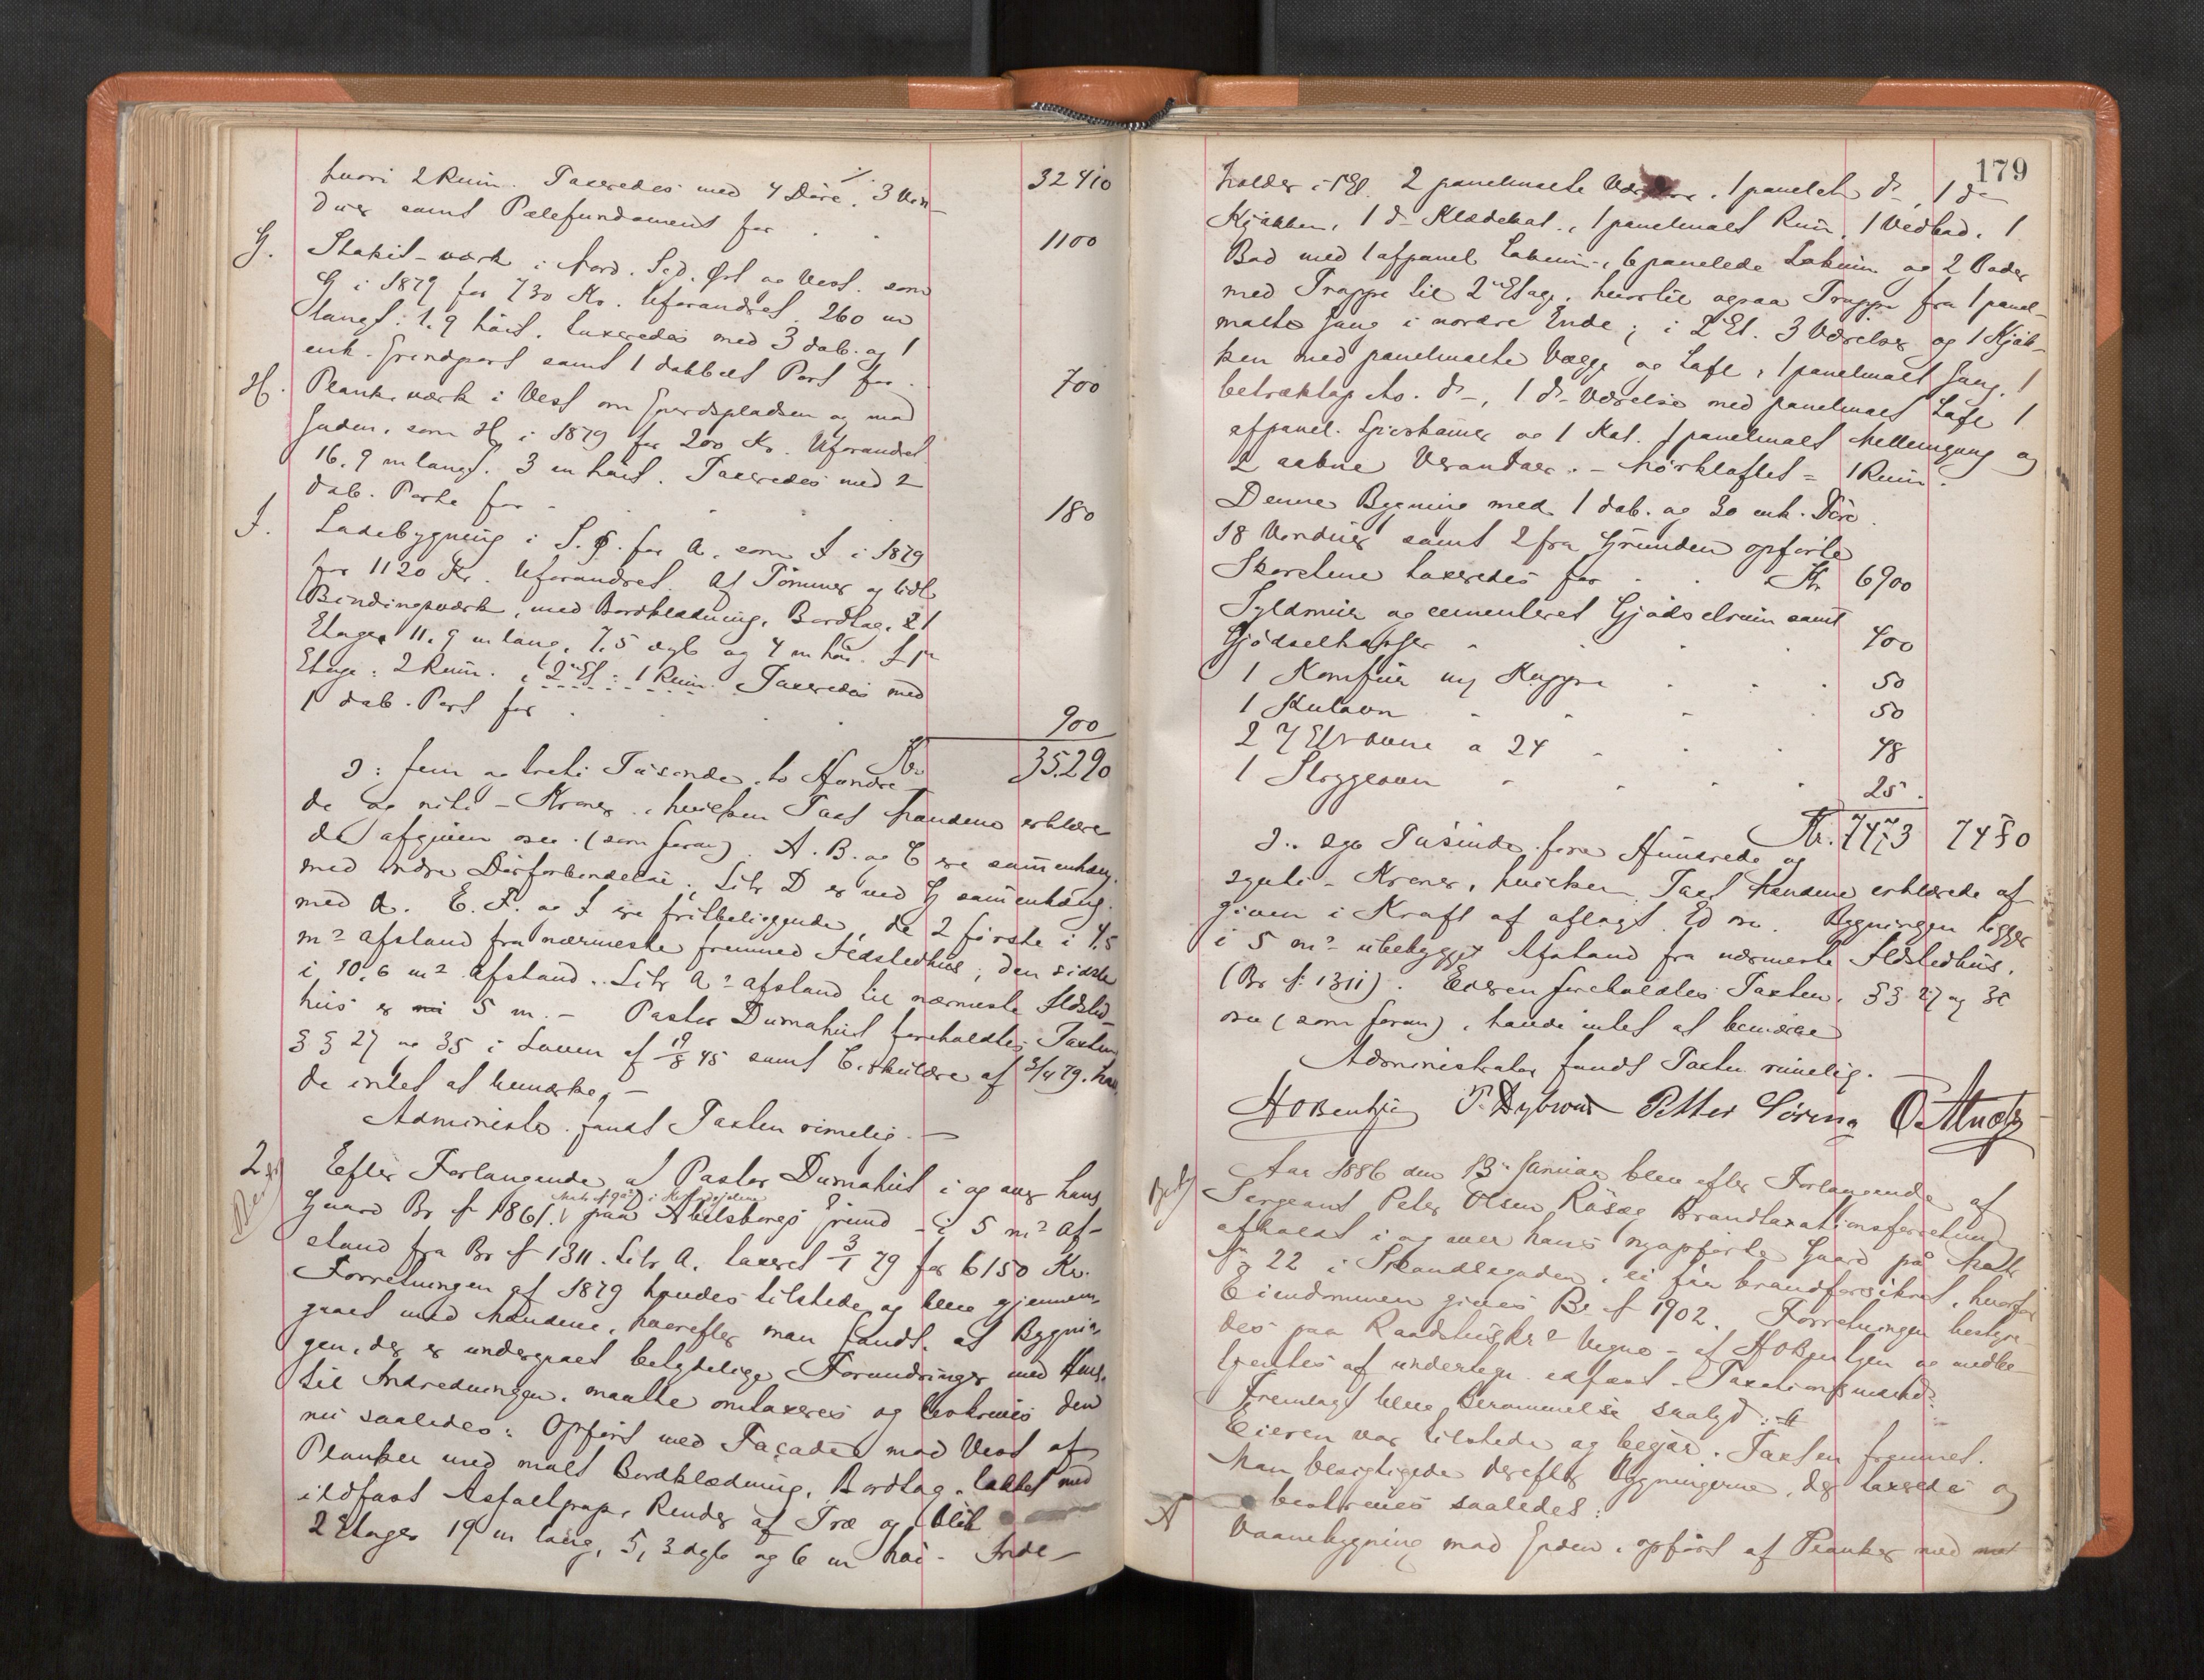 hvori 2 Rum. Taxeredes med 4 Döre, 3 Vin-
duer samt Pælefundament for . . 32410
G. Stakit-værk i Nord. Syd. Øst og Vest. som
G i 1879 for 730 Kr. Uforandret. 260 m
langt. 1.9 høit. Taxeredes med 3 dob. og 1
enk. Grindport samt 1 dobbelt Port for . 1100
H. Plankeværk i Vest om Gaardspladsen og mod
Gaden, som H i 1879 for 200 Kr. Uforandret.
16.9 m langt. 3 m høit. Taxeredes med 2
dob. Porte for . . . 700
I. Ladebygning i S.Ø. for A. som I i 1879
for 1120 Kr. Uforandret. Af Tømmer og lidt
Bindingsværk, med Bordklædning, Bordtag, 2
Etager 11.9 m lang, 7.5 dyb og 4 m høi. I 1ste
Etage: 2 Rum. i 2den Et: 1 Rum. Taxeredes med
1 dob. Port for . . . 180
900
Kr. 35.290
ɔ: fem og treti Tusinde, to Hundre-
de og niti - Kroner, hvilken Taxt Mændene erklære-
de afgiven osv. (som foran). A. B. og C ere sammenhæng.
med indre Dørforbindelse. Litr D er ved G sammenhæng.
med A. E. F. og I ere fritbeliggende, de 2 første i 4.5
m² afstand fra nærmeste fremmed Ildstedhus, den sidste
i 10.6 m² afstand. Litr A² afstand til nærmeste Ildsted-
hus er 5 m. - Pastor Dumahut foreholdtes Taxten
§ § 27 og 35 i Loven af 19/8 45 samt Cirkulære af 3/4 79. hav-
de intet at bemærke. -
Administr. fandt Taxten rimelig. -
2. Efter Forlangende af Pastor Dumahut i og over hans
Gaard Br № 1861. paa Abelsborgs Grund - i 5 m² af-
stand fra Br № 1311. Litr A. taxeret 3/1 79 for 6150 Kr.
Forretningen af 1879 havdes tilstede og blev gjennem-
gaaet med Mændene, hvorefter man fandt, at Bygnin-
gen, der er undergaaet betydelige Forandringer med Hens.
til Indredningen, maatte omtaxeres og beskrives den
nu saaledes: Opført med Façade mod Vest af
Planker med malt Bordklædning, Bordtag, lakket med
ildfast Asfaltpap, Render af Træ og Blik
2 Etager 19 m lang, 5,3 dyb og 6 m høi - Inde-
179
holder i 1 Et. 2 panelmalte Værelser, 1 panelet do, 1 do
Kjøkken, 1 do Klædekot., 1 panelmalt Rum, 1 Vedbod, 1
Bod med 1 afpanel Lokum, 6 panelede Lokum og 2 Boder
med Trappe til 2den Etage, hvortil ogsaa Trappe fra 1 panel-
malte Gang i nordre Ende; i 2 Et. 3 Værelser og 1 Kjøk-
ken med panelmalte Vægge og Loft, 1 panelmalt Gang, 1
betræktap. do. do -, 1 do Værelse med panelmalt Loft 1
afpanel. Spiskammer og 1 Kot. 1 panelmalt Mellemgang og
2 aabne Verandaer. - Mørkloftet = 1 Rum.
Denne Bygning med 1 dob. og 30 enk. Döre.
18 Vinduer samt 2 fra Grunden opførte
Skorstene taxeredes for . . Kr 6900
Syldmur og cementeret Gjødselrum samt
Gjødselkasser . . . 400
1 Komfur ny Kappe . . . 50
1 Kulovn . . . . 50
2 7 Etr ovne a 24 . . . 48
1 Strygeovn . . . . 25.
Kr. 7473 7480
ɔ: syv Tusinde, fire Hundrede og
sgnti - Kroner, hvilken Taxt Mændene erklærede af-
given i Kraft af aflagt Ed osv. Bygningen ligger
i 5 m² ubebygget Afstand fra nærmeste Ildstedhus,
(Br № 1311). Eieren foreholdtes Taxten, §§ 27 og 35
osv (som foran), havde intet at bemærke
Administrator fandt Taxten rimelig. -
HOBentzen P. Dybwad Petter Söreng O. Alnæs
Aar 1886 den 13de Januar blev efter Forlangende af
Sergeant Peter Olsen Råsæg Brandtaxationsforretning
afholdt i og over hans nyopførte Gaard på Matr
№ 22 i Strandsgaden, ei før brandforsikret, hvorfor
Eiendommen gives Br № 1902. Forretningen bestyre-
des paa Raadstueskr² Vegne - af HOBentzen og medbe-
tjentes af undertegn. edfæst. Taxationsmænd.
Fremlagt blev Berammelse saalyd: #
Eieren var tilstede og begjær. Taxten fremmet.
Man besigtigede derefter Bygningerne, der taxeredes og
beskrives saaledes:
A Vaanebygning mod Gaden, opført af Planker med